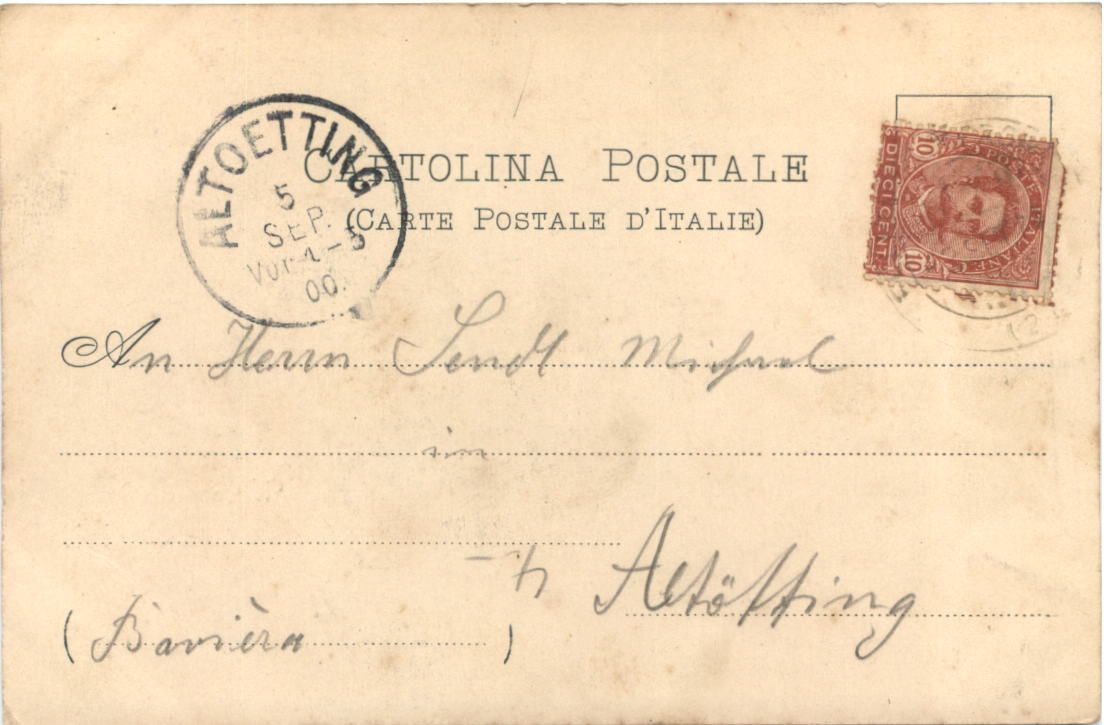 ALTOETTING
5
SEP.
Vor. 4-5
00.
CARTOLINA POSTALE
(CARTE POSTALE D'ITALIE)
10 POSTE ITALIANE 10
DIECI CENT.
An Herrn Sendl Michael
in
Altötting
(Bavièra)